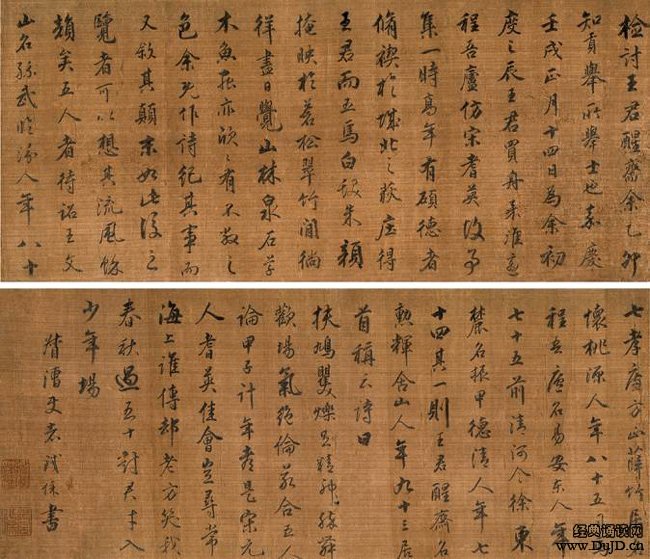 检討王君醒齋余乙卯
知貢舉所舉士也嘉慶
壬戌正月十四日為余初
度之辰王君買舟來淮適
程吾廬仿宋耆英
集一時高年有碩德者
脩禊於城北之荻庄得
王君而五焉白髮朱顏
掩映於蒼松翠竹間徜
徉盡日覺山林泉石草
木魚鳥亦欣欣有不之
色余先作詩紀其事而
又敘其顛末如此後之
覽者可以想其流風餘
韻矣五人者待詔王文
山名孫武臨汾人年八十
七孝廉方正薛竹居
懷桃源人年八十五
程吾廬名易安東人年
七十五前清河令徐東
麓名振甲德清人年七
十四其一則王君醒齋名
勲輝含山人年九十三居
首稱云詩曰
扶鳩矍鑠見精神舞
歡場氣絶倫若合五人
論甲子計年應是宋元
人耆英佳會豈尋常
海上誰傳卻老方笑我
春秋過五十對君未入
少年場
督漕使者鐵保書
经典诵读网
www.DyJD.cn